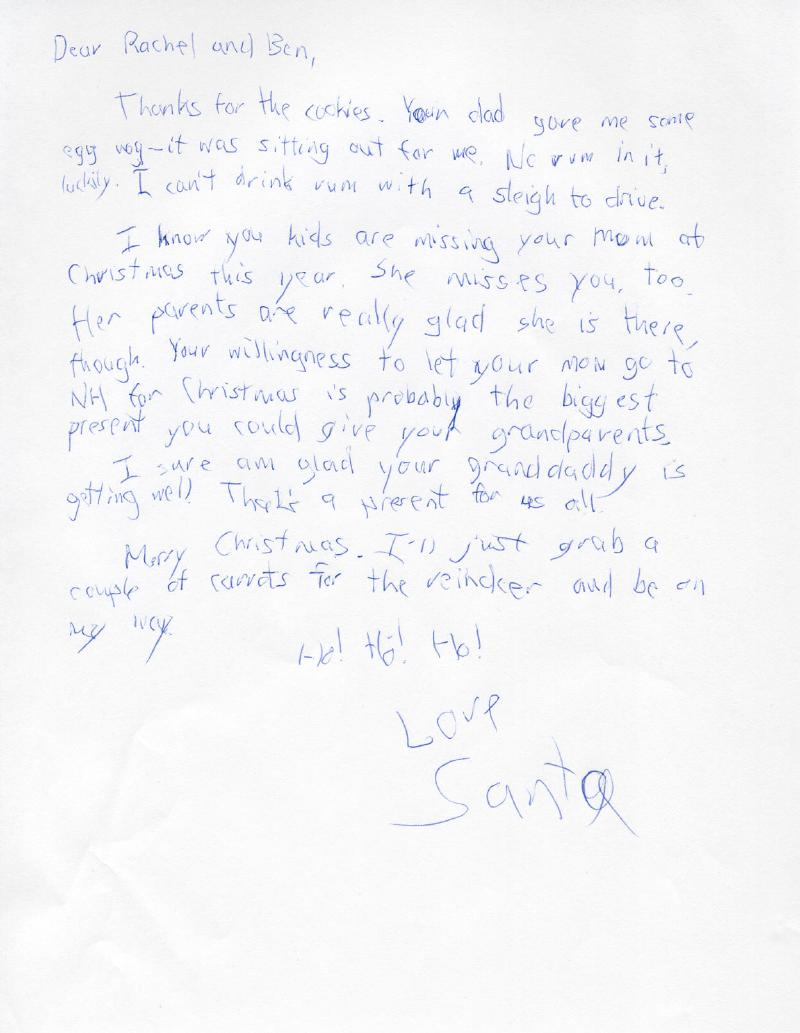 Dear Rachel and Ben,
Thanks for the cookies. Your dad gave me some
egg nog—it was sitting out for me. No rum in it,
luckily. I can't drink rum with a sleigh to drive.
I know you kids are missing your mom at
Christmas this year. She misses you, too.
Her parents are really glad she is there,
though. Your willingness to let your mom go to
NH for Christmas is probably the biggest
present you could give your grandparents.
I sure am glad your granddaddy is
getting well! That's a present for us all.
Merry Christmas. I'll just grab a
couple of carrots for the reindeer and be on
my way.
Ho! Ho! Ho!
Love
Santa